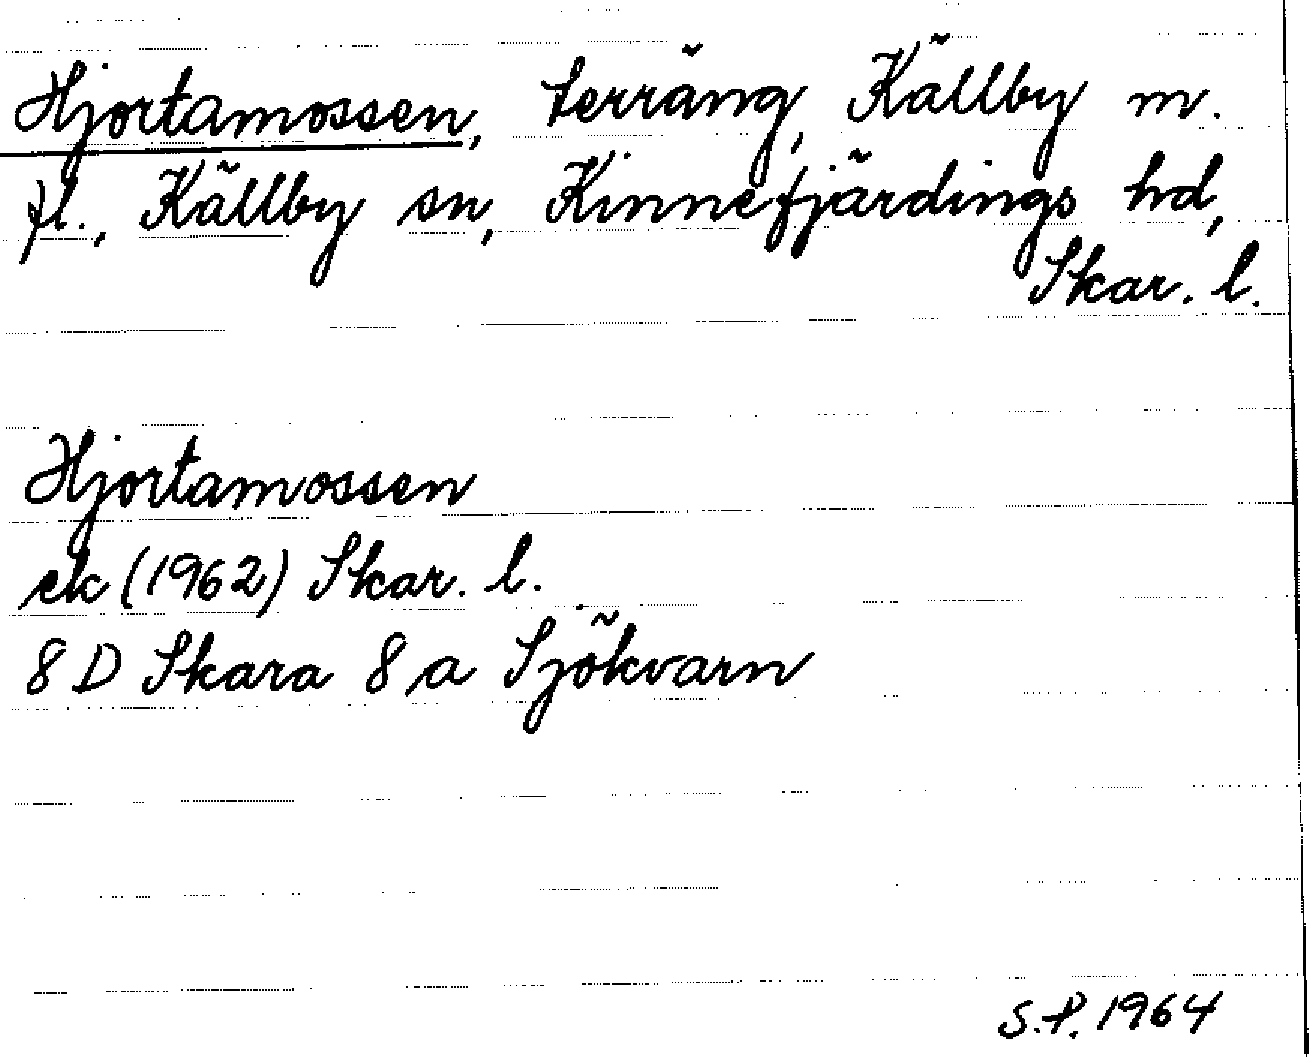 Hjortamossen, terräng, Källby m.
fl., Källby sn, Kinnefjärdings hd,
Skar. l.
Hjortamossen
ek (1962) Skar. l.
8 D Skara 8 a Sjökvarn
S.P. 1964